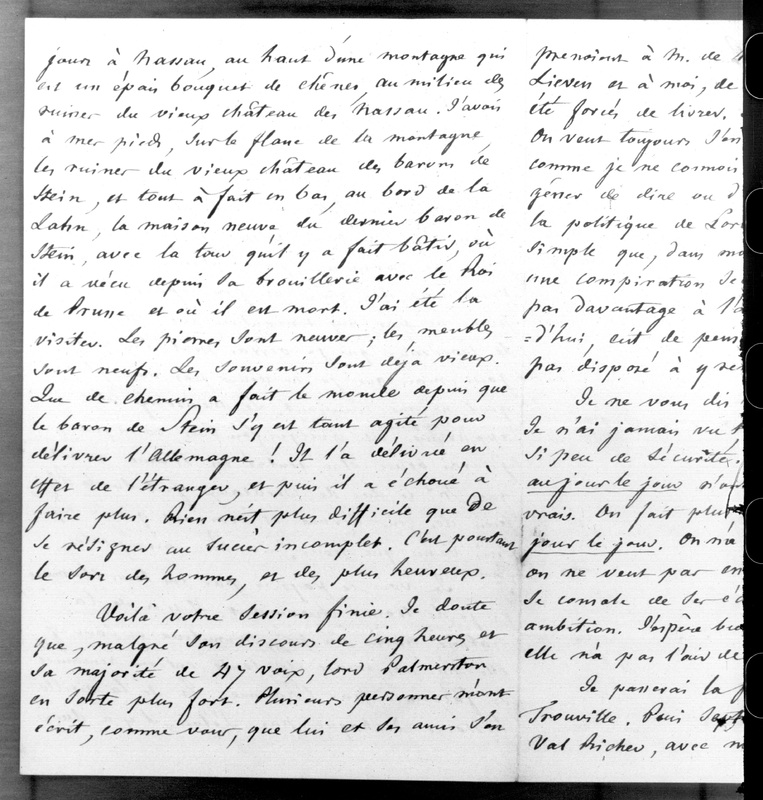 jours à Nassau, au haut d'une montagne qui
est un épais bouquet de chênes, au milieu des
ruines du vieux château des Nassau. J'avais
à mes pieds, sur le flanc de la montagne
les ruines du vieux château des barons de
Stein, et tout à fait en bas, au bord de la
Lahn, la maison neuve du dernier baron de
Stein, avec la tour qu'il y a fait bâtir, où
il a vécu depuis sa brouillerie avec le Roi
de Prusse et où il est mort. J'ai été la
visiter. Les pierres sont neuves ; les meubles
sont neufs. Les souvenirs sont déjà vieux.
Que de chemin a fait le monde depuis que
le baron de Stein s'y est tant agité pour
délivrer l'Allemagne ! Il l'a délivré en
effet de l'étranger, et puis il a échoué à
faire plus. Rien n'est plus difficile que de
se résigner au succès incomplet. C'est pourtant
le sort des hommes, et des plus heureux.
Voilà votre session finie. Je doute
que, malgré son discours de cinq heures et
sa majorité de 47 voix, lord Palmerston
en sorte plus fort. Plusieurs personnes m'ont
écrit, comme vous, que lui et ses amis s'en
prenoient à M. de
Lieven et à moi, de
été forcés de livrer.
On veut toujours
comme je ne connois
gêner de dire ou
la politique de
simple que, dans
une conspiration
pas davantage à
=d'hui, eût de
pas disposé à y
Je ne vous dis
Je n'ai jamais vu
si peu de sécurité.
au jour le jour
vrais. On fait
jour le jour. On
on ne veut pas
se console de ses
ambition. J'espère
elle n'a pas l'air de
Je passerai la
Trouville. Puis
Val Richer, avec